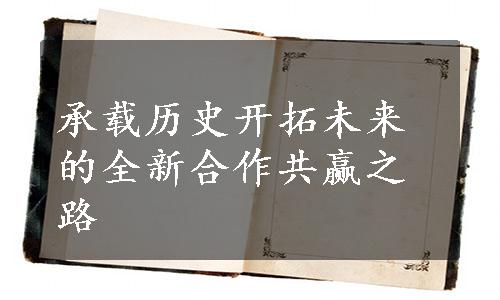 承载历史开拓未来
的全新合作共赢之
路